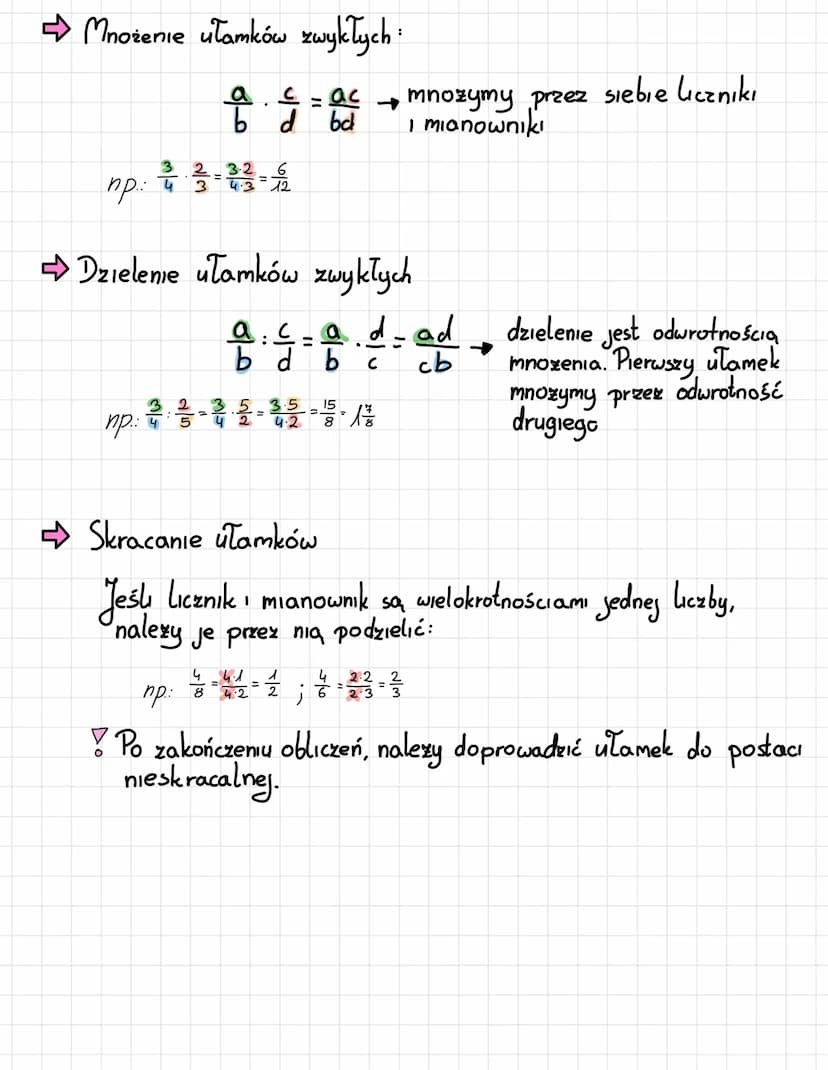 ⇨ Mnożenie ułamków zwykłych:
a/b · c/d = ac/bd → mnożymy przez siebie liczniki
i mianowniki
np.: 3/4 · 2/3 = 3·2/4·3 = 6/12
⇨ Dzielenie ułamków zwykłych
a/b : c/d = a/b · d/c = ad/cb → dzielenie jest odwrotnością
mnożenia. Pierwszy ułamek
mnożymy przez odwrotność
drugiego
np.: 3/4 : 2/5 = 3/4 · 5/2 = 3·5/4·2 = 15/8 = 1 7/8
⇨ Skracanie ułamków
Jeśli licznik i mianownik są wielokrotnościami jednej liczby,
należy je przez nią podzielić:
np.: 4/8 = 4·1/4·2 = 1/2 ; 4/6 = 2·2/2·3 = 2/3
! Po zakończeniu obliczeń, należy doprowadzić ułamek do postaci
nieskracalnej.